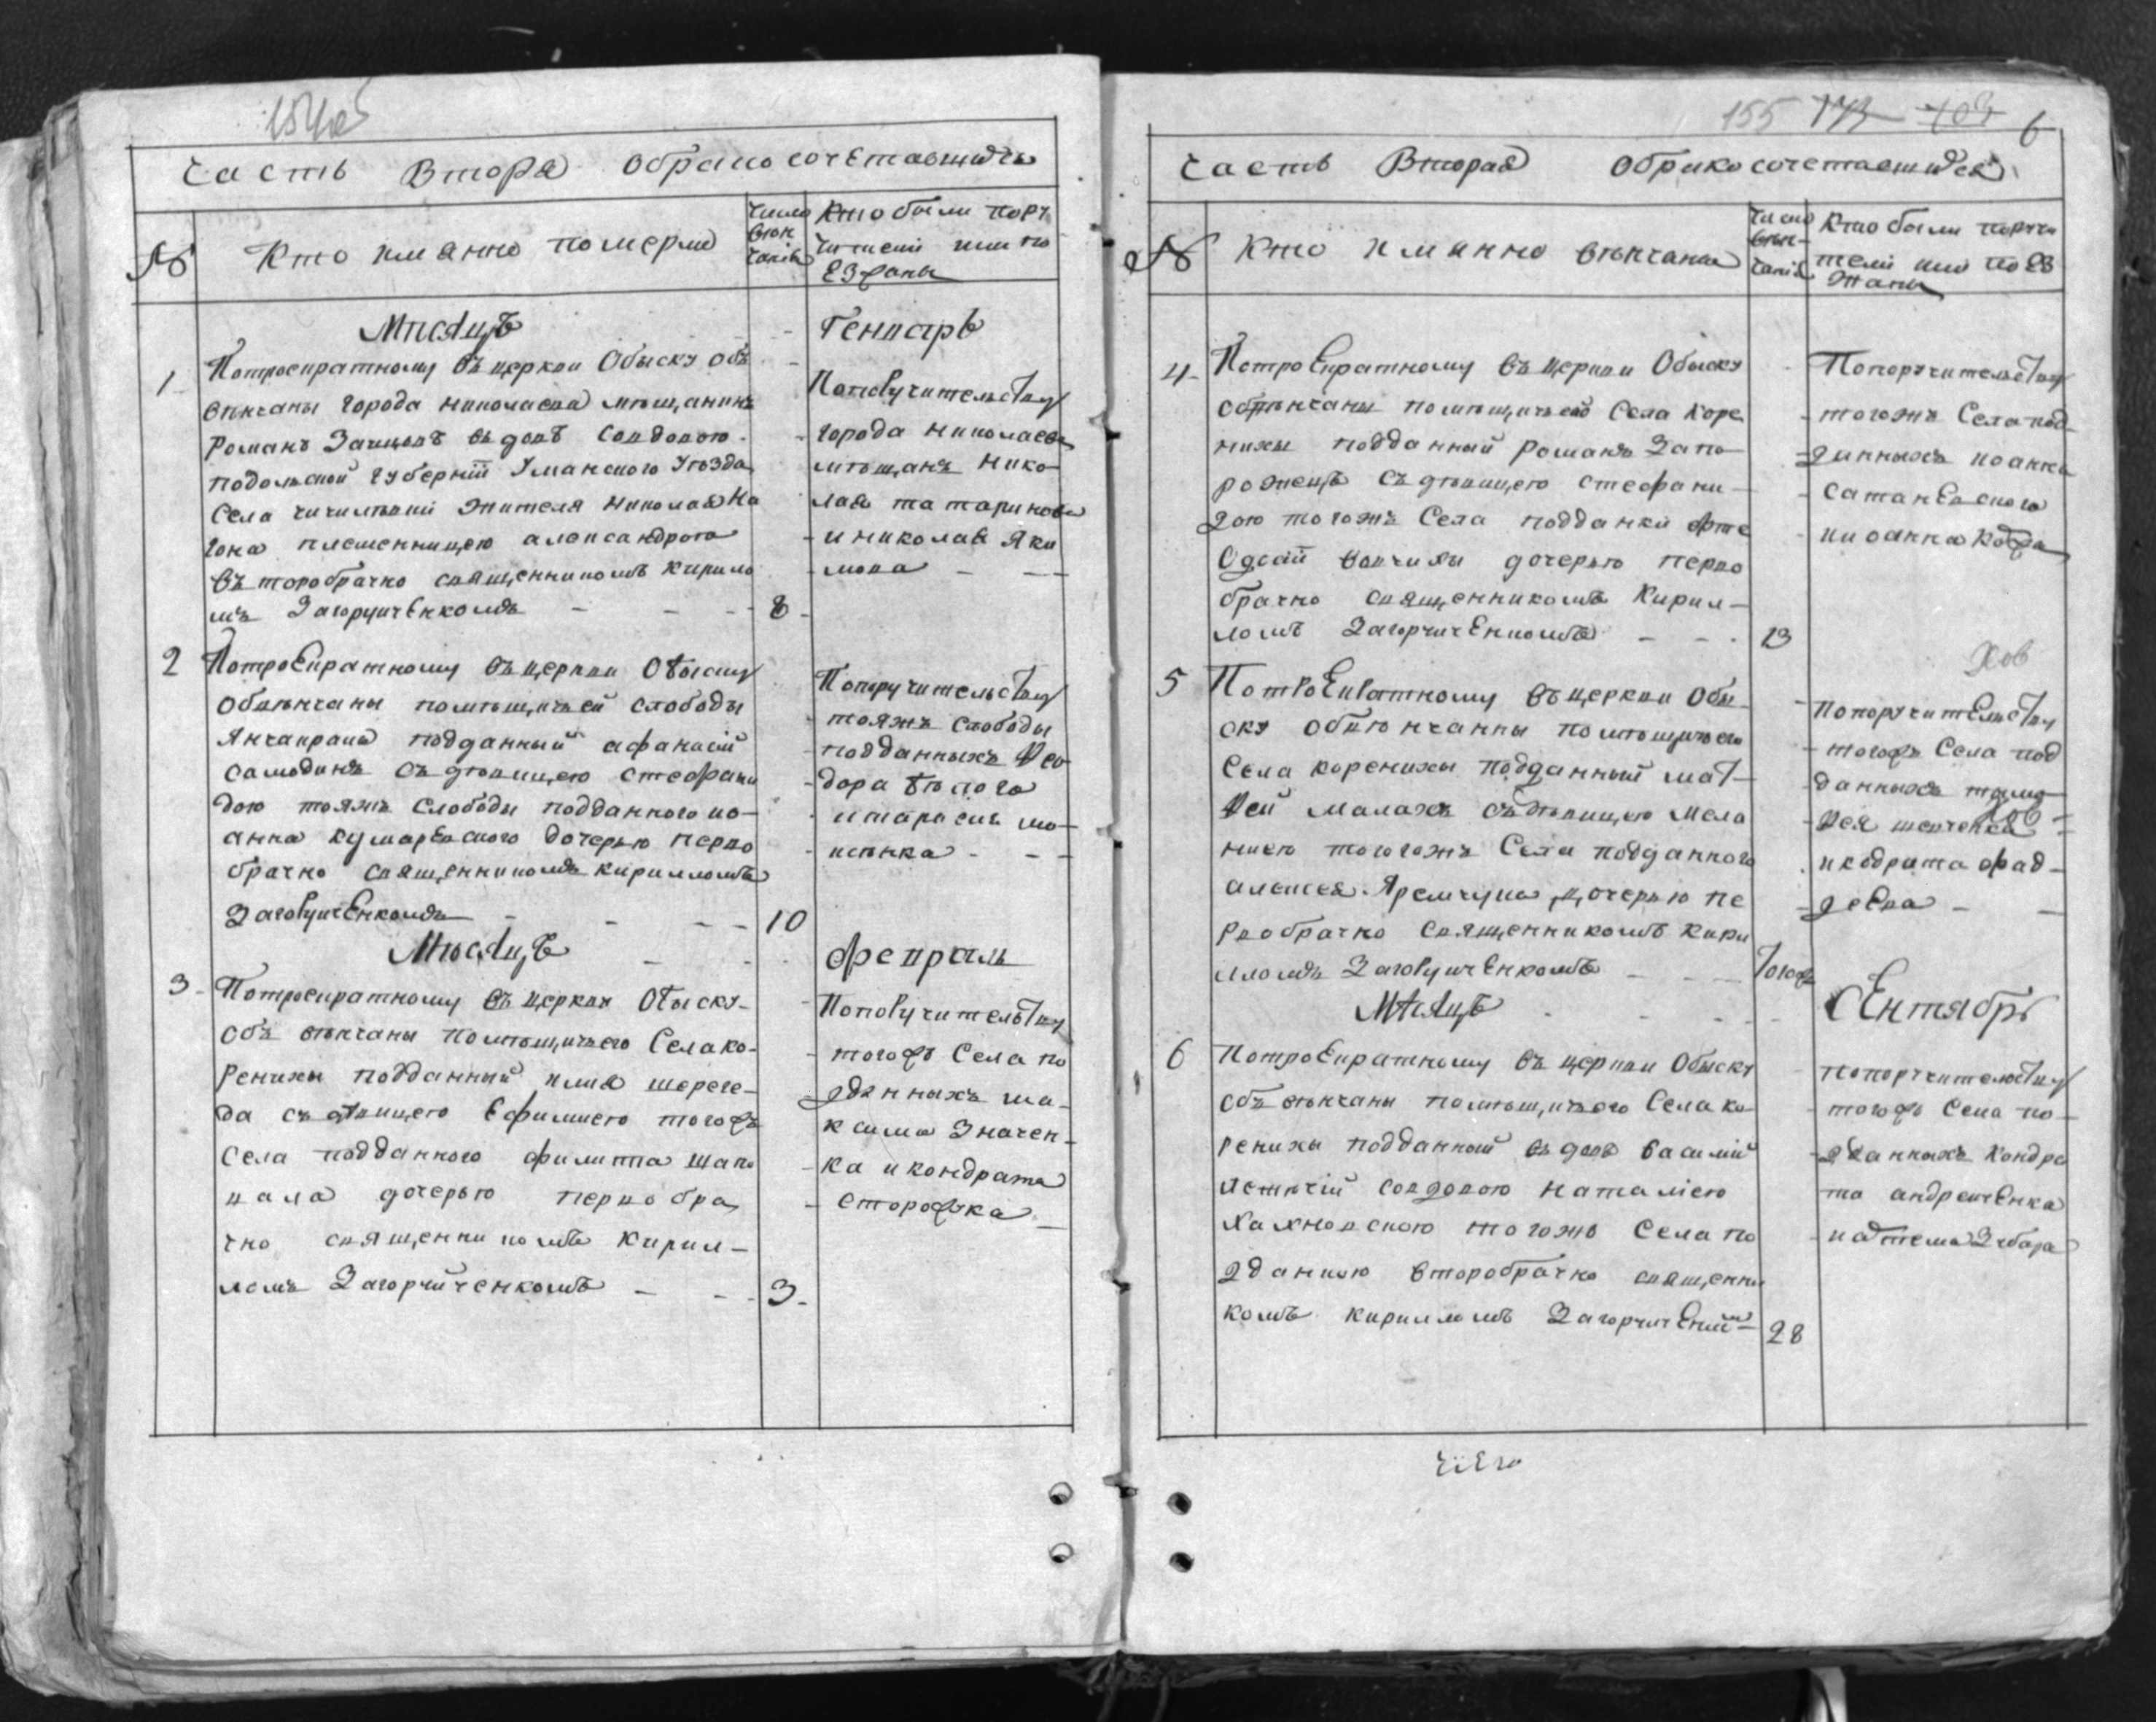 154об
Часть Втора обрако сочетавшихся
№
Кто имянно померли
Число
вѣн
чанія
Кто были пору
чители или по
езжаны
Мѣсяцъ
Генварь
1
Потроекратному въ церкви Обыску объ
вѣнчаны города николаева мѣщанинъ
романъ Заицовъ вдовъ совдовою
подольской губерніи Уманского Уѣзда
Села чичиліовки жителя николая
гона племенницею александрою
въторобрачно священникомъ кирило
мъ Загоруйченкомъ
8
Попоручительству
города николаева
мѣщанъ Нико
лая татаринова
и николая Яки
мова
2
Потроекратному въ церкви Обыску
Обвѣнчаны помѣщичьей слободы
Янчакрака подданный афанасій
самодинъ съ дѣвицею стефани
дою тояжъ Слободы подданного ио
анна кумаревского дочерью перво
брачно священникомъ кирилломъ
Загоруйченкомъ
10
Попоручительству
тояжъ слободы
подданныхъ Фео
дора бѣлого
и тараска мо
исѣнка
Мѣсяцъ
февраль
3
Потроекратному въ церкви Обыску
Объ вѣнчаны помѣщичьего Села ко
ренихи подданный илія шереге
да съ дѣвицею Ефимиею тогожъ
Села подданного филиппа шапо
вала дочерью перво бра
чно священникомъ кирил
ломъ Загоруйченкомъ
3
Попоручительству
тогожъ Села по
дданныхъ ма
ксима Значен
ка и кондрата
сторожка
155 173 103 6
Часть Вторая Обрако сочетавшихся
№
Кто имянно вѣнчаны
Число
вѣн
чанія
Кто были поручи
тели или поез
жаны
4
Потроекратному въ церкви Обыску
Обвѣнчаны помѣщичьего Села Коре
нихи подданный романъ Запо
рожецъ съ дѣвицею стефани
дою тогожъ Села подданки
вовчихи дочерью перво
брачно священникомъ Кирил
ломъ Загоруйченкомъ
13
Попоручительству
тогожъ Села под
данныхъ иоанна
сатановского
и иоанна
5
Потроекратному въ церкви Обы
ску обвѣнчанны помѣщичьего
Села коренихи подданный мат
фей малахъ съ дѣвицею мела
ниею тогожъ Села подданного
алексея Яремчука дочерью пе
рвобрачно священникомъ кири
лломъ Загоруйченкомъ
тогожъ
Попоручительству
тогожъ Села под
данныхъ
фея шевченка
и кодрата фад
деева
Мѣсяцъ
Сентябрь
6
Потроекратному въ церкви Обыску
Объ вѣнчаны помѣщичьего Села ко
ренихи подданный вдовъ василій
совдовою наталіею
тогожъ Села по
дданною второбрачно священни
комъ кирилломъ Загоруйченкомъ
28
Попоручительству
тогожъ Села по
дданныхъ Кондра
та андрейченка